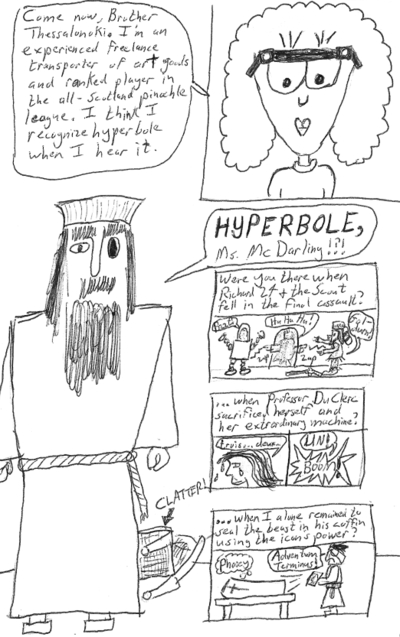 Come now, Brother
Thessalonoki. I'm an
experienced freelance
transporter of art goods
and ranked player in
the all-Scotland pinochle
league. I think I
recognize hyperbole
when I hear it.
HYPERBOLE,
Ms. McDarling!!!
Were you there when
Richard 24 & the Savant
fell in the final assault?
Hu Ha Ha!
Zap
...when Professor DuClerc
sacrificed herself and
her extraordinary machine?
Trois... deux...
UN!
BOOM!
CLATTER!
...when I alone remained to
seal the beast in his coffin
using the icon's power?
Phooey
Adventum
Terminus!